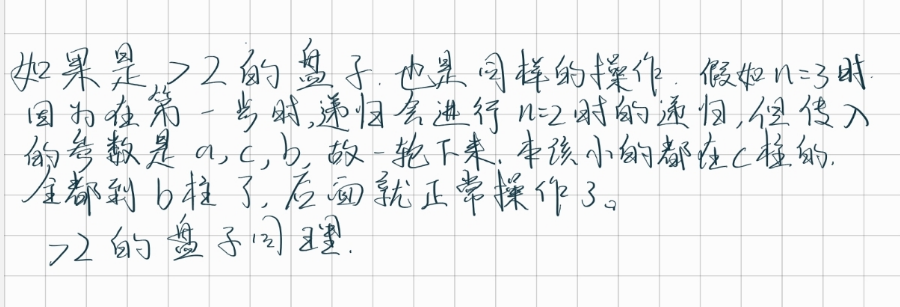 如果是>2的盘子.也是同样的操作.假如n=3时.
因为在第一步时,递归会进行n=2时的递归,但传入
的参数是a,c,b,故一轮下来.本该小的都在c柱的.
全都到b柱了,后面就正常操作了。
>2的盘子同理.